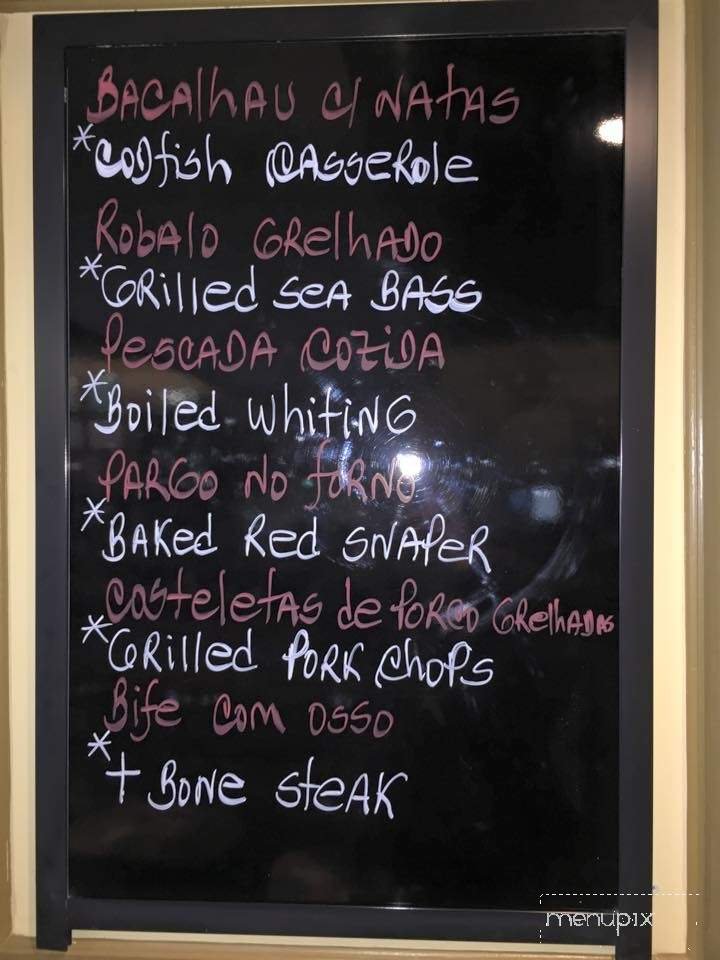 BACAlhAU c/ NAtAS
*CODfish CASSeRole
RobAlo GRelhADO
*GRilled SeA BASS
PeSCADA COZiDA
*Boiled WhitiNG
PARGO No foRNO
*BAKed Red SNAPeR
CoSteletAS de PoRCO GRelhADAS
*GRilled PoRK ChoPS
Bife Com OSSO
*t BoNe SteAK
menupix